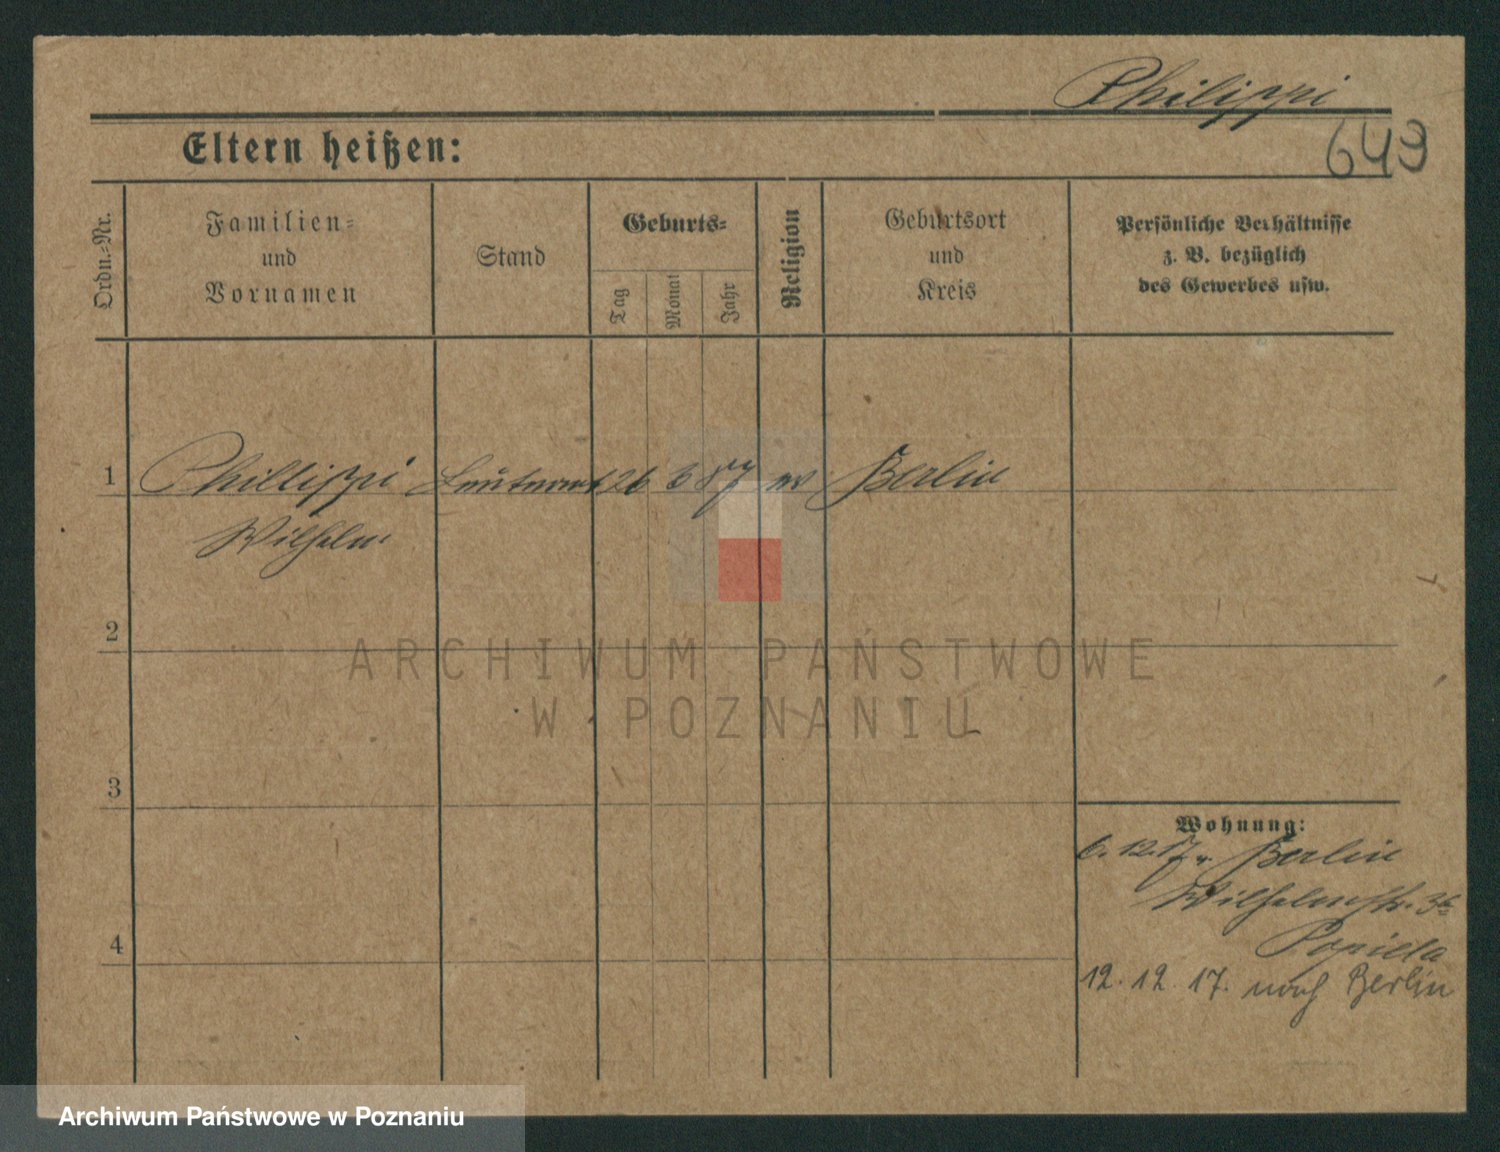 Philippi
649
Eltern heißen:
Ordn.-Nr.
Familien-
und
Vornamen
Stand
Geburts-
Tag
Monat
Jahr
Religion
Geburtsort
und
Kreis
Persönliche Verhältnisse
z. B. bezüglich
des Gewerbes usw.
1 Phillippi Leutnant 26 6 87 ev Berlin
Wilhelm
2
3
4
Wohnung:
6. 12. 17 v. Berlin
Wilhelmstr.
12. 12. 17. nach Berlin
ARCHIWUM PAŃSTWOWE
W POZNANIU
Archiwum Państwowe w Poznaniu